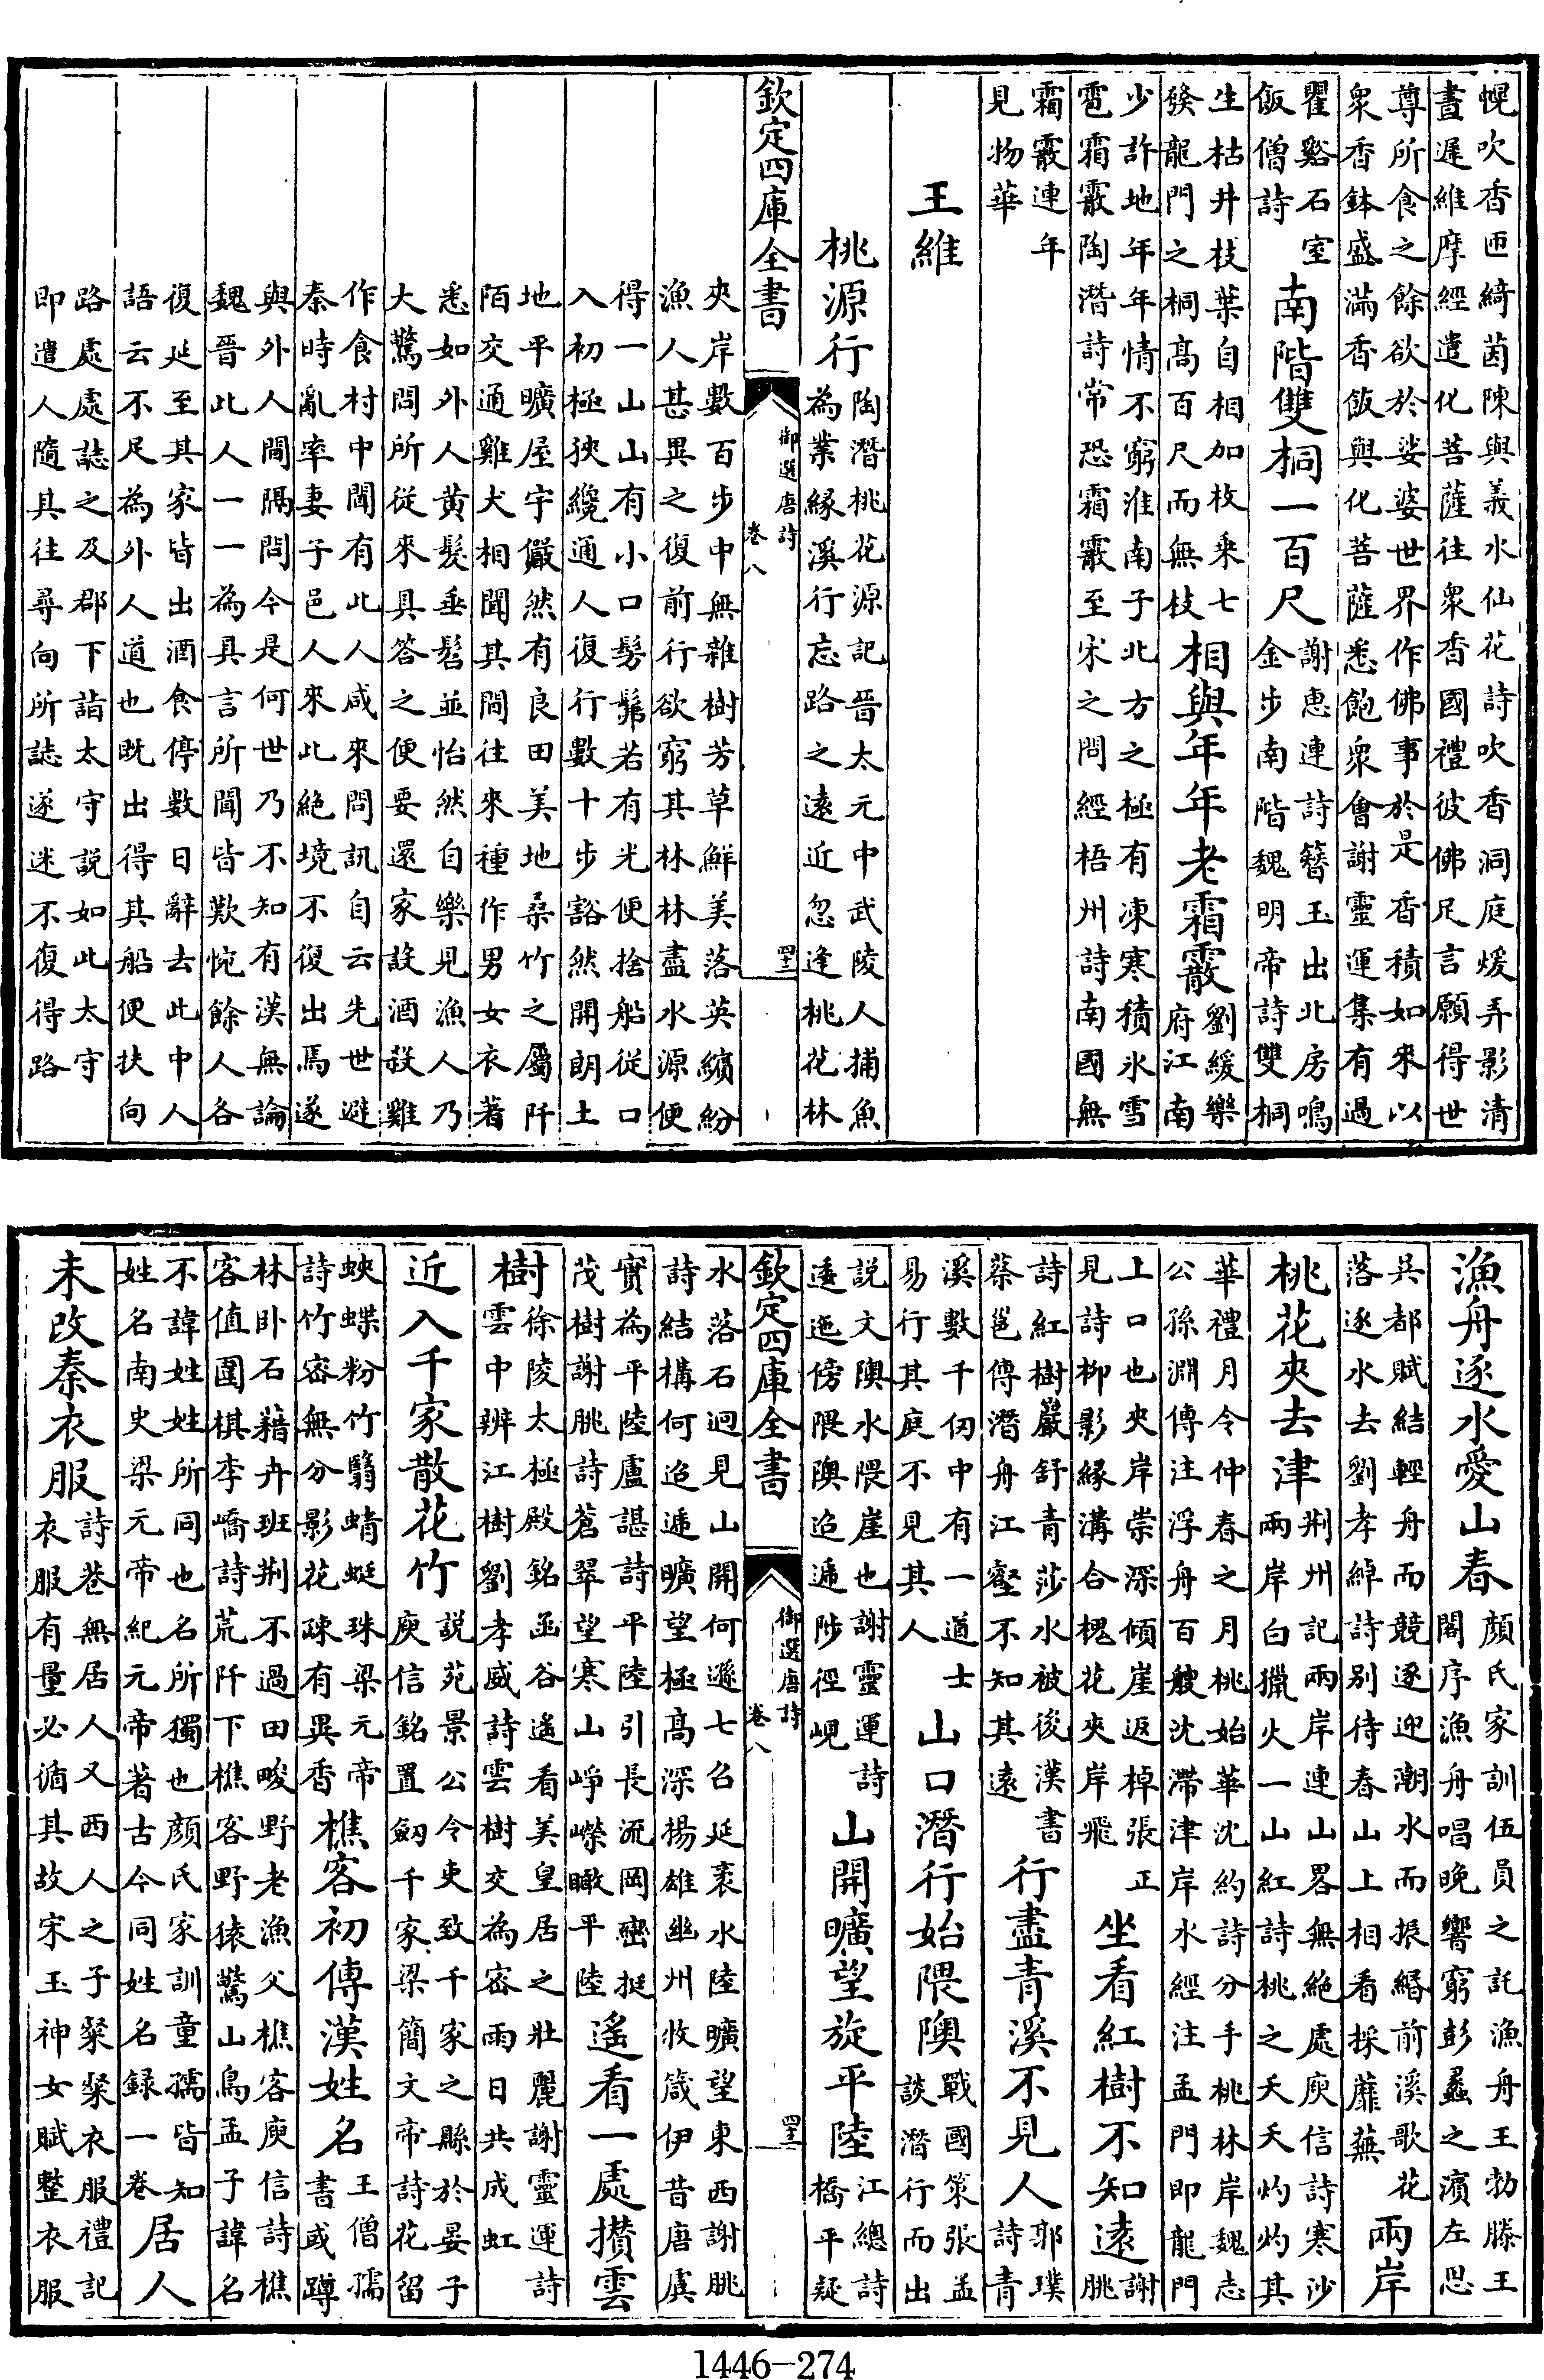 幌吹香匝綺茵陳與義水仙花詩吹香洞庭煖弄影清
晝遲維摩經遣化菩薩往衆香國禮彼佛足言願得世
尊所食之餘欲於娑婆世界作佛事於是香積如來以
衆香鉢盛滿香飯與化菩薩悉飽衆會謝靈運集有過
瞿谿石室
飯僧詩
南階雙桐一百尺
謝惠連詩簪玉出北房鳴
金步南階魏明帝詩雙桐
生枯井枝葉自相加枚乘七
發龍門之桐高百尺而無枝
相與年年老霜霰
劉緩樂
府江南
少許地年年情不窮淮南子北方之極有凍寒積氷雪
雹霜霰陶潛詩常恐霜霰至宋之問經梧州詩南國無
霜霰連年
見物華
王維
桃源行
陶潛桃花源記晉太元中武陵人捕魚
為業緣溪行忘路之遠近忽逢桃花林
欽定四庫全書
御選唐詩
卷八
夾岸數百步中無雜樹芳草鮮美落英繽紛
漁人甚異之復前行欲窮其林林盡水源便
得一山山有小口髣髴若有光便捨船從口
入初極狹纔通人復行數十步豁然開朗土
地平曠屋宇儼然有良田美地桑竹之屬阡
陌交通雞犬相聞其間往來種作男女衣著
悉如外人黃髮垂髫並怡然自樂見漁人乃
大驚問所從來具答之便要還家設酒殺雞
作食村中聞有此人咸來問訊自云先世避
秦時亂率妻子邑人來此絕境不復出焉遂
與外人間隔問今是何世乃不知有漢無論
魏晉此人一一為具言所聞皆歎惋餘人各
復延至其家皆出酒食停數日辭去此中人
語云不足為外人道也既出得其船便扶向
路處處誌之及郡下詣太守説如此太守
即遣人隨其往尋向所誌遂迷不復得路
漁舟逐水愛山春
顔氏家訓伍員之託漁舟王勃滕王
閣序漁舟唱晚響窮彭蠡之濱左思
吳都賦結輕舟而競逐迎潮水而振緡前溪歌花
落逐水去劉孝綽詩別待春山上相看採蘼蕪
兩岸
桃花夾去津
荆州記兩岸連山畧無絕處庾信詩寒沙
兩岸白獵火一山紅詩桃之夭夭灼灼其
華禮月令仲春之月桃始華沈約詩分手桃林岸魏志
公孫淵傳注浮舟百艘沈滯津岸水經注孟門即龍門
上口也夾岸崇深傾崖返棹張正
見詩柳影緣溝合槐花夾岸飛
坐看紅樹不知遠
謝
朓
詩紅樹巖舒青莎水被後漢書
蔡邕傳潛舟江壑不知其遠
行盡青溪不見人
郭璞
詩青
溪數千仞中有一道士
易行其庭不見其人
山口潛行始隈隩
戰國策張孟
談潛行而出
説文隩水隈崖也謝靈運詩
逶迤傍隈隩迢遞陟徑峴
山開曠望旋平陸
江總詩
橋平疑
欽定四庫全書
御選唐詩
卷八
水落石迥見山開何遜七召延袤水陸曠望東西謝朓
詩結構何迢遞曠望極高深揚雄幽州牧箴伊昔唐虞
實為平陸盧諶詩平陸引長流岡巒挺
茂樹謝朓詩蒼翠望寒山崢嶸瞰平陸
遙看一處攢雲
樹
徐陵太極殿銘函谷遙看美皇居之壯麗謝靈運詩
雲中辨江樹劉孝威詩雲樹交為密雨日共成虹
近入千家散花竹
説苑景公令吏致千家之縣於晏子
庾信銘置劒千家梁簡文帝詩花留
蛺蝶粉竹翳蜻蜓珠梁元帝
詩竹密無分影花疎有異香
樵客初傳漢姓名
王僧孺
書或蹲
林卧石藉卉班荆不過田畯野老漁父樵客庾信詩樵
客值圍棋李嶠詩荒阡下樵客野猿驚山鳥孟子諱名
不諱姓姓所同也名所獨也顔氏家訓童孺皆知
姓名南史梁元帝紀元帝著古今同姓名録一卷
居人
未改秦衣服
詩巷無居人又西人之子粲粲衣服禮記
衣服有量必循其故宋玉神女賦整衣服
1446-274